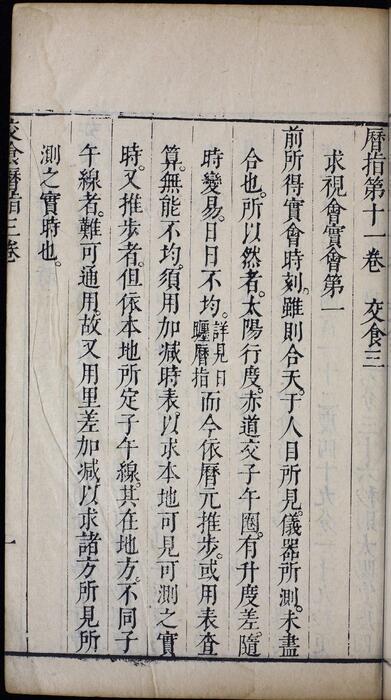 曆指第十一卷 交食三
求視會實會第一
前所得實會時刻。雖則合天。于人目所見。儀器所測。未盡
合也。所以然者。太陽行度。赤道交子午圈。有升度差。隨
時變易。日日不均。詳見日躔曆指而今依曆元推步。或用表查
算。無能不均。須用加減時表。以求本地可見可測之實
時。又推步者。但依本地所定子午線。其在地方。不同子
午線者。難可通用。故又用里差加減。以求諸方所見所
測之實時也。
交食曆指三卷
一